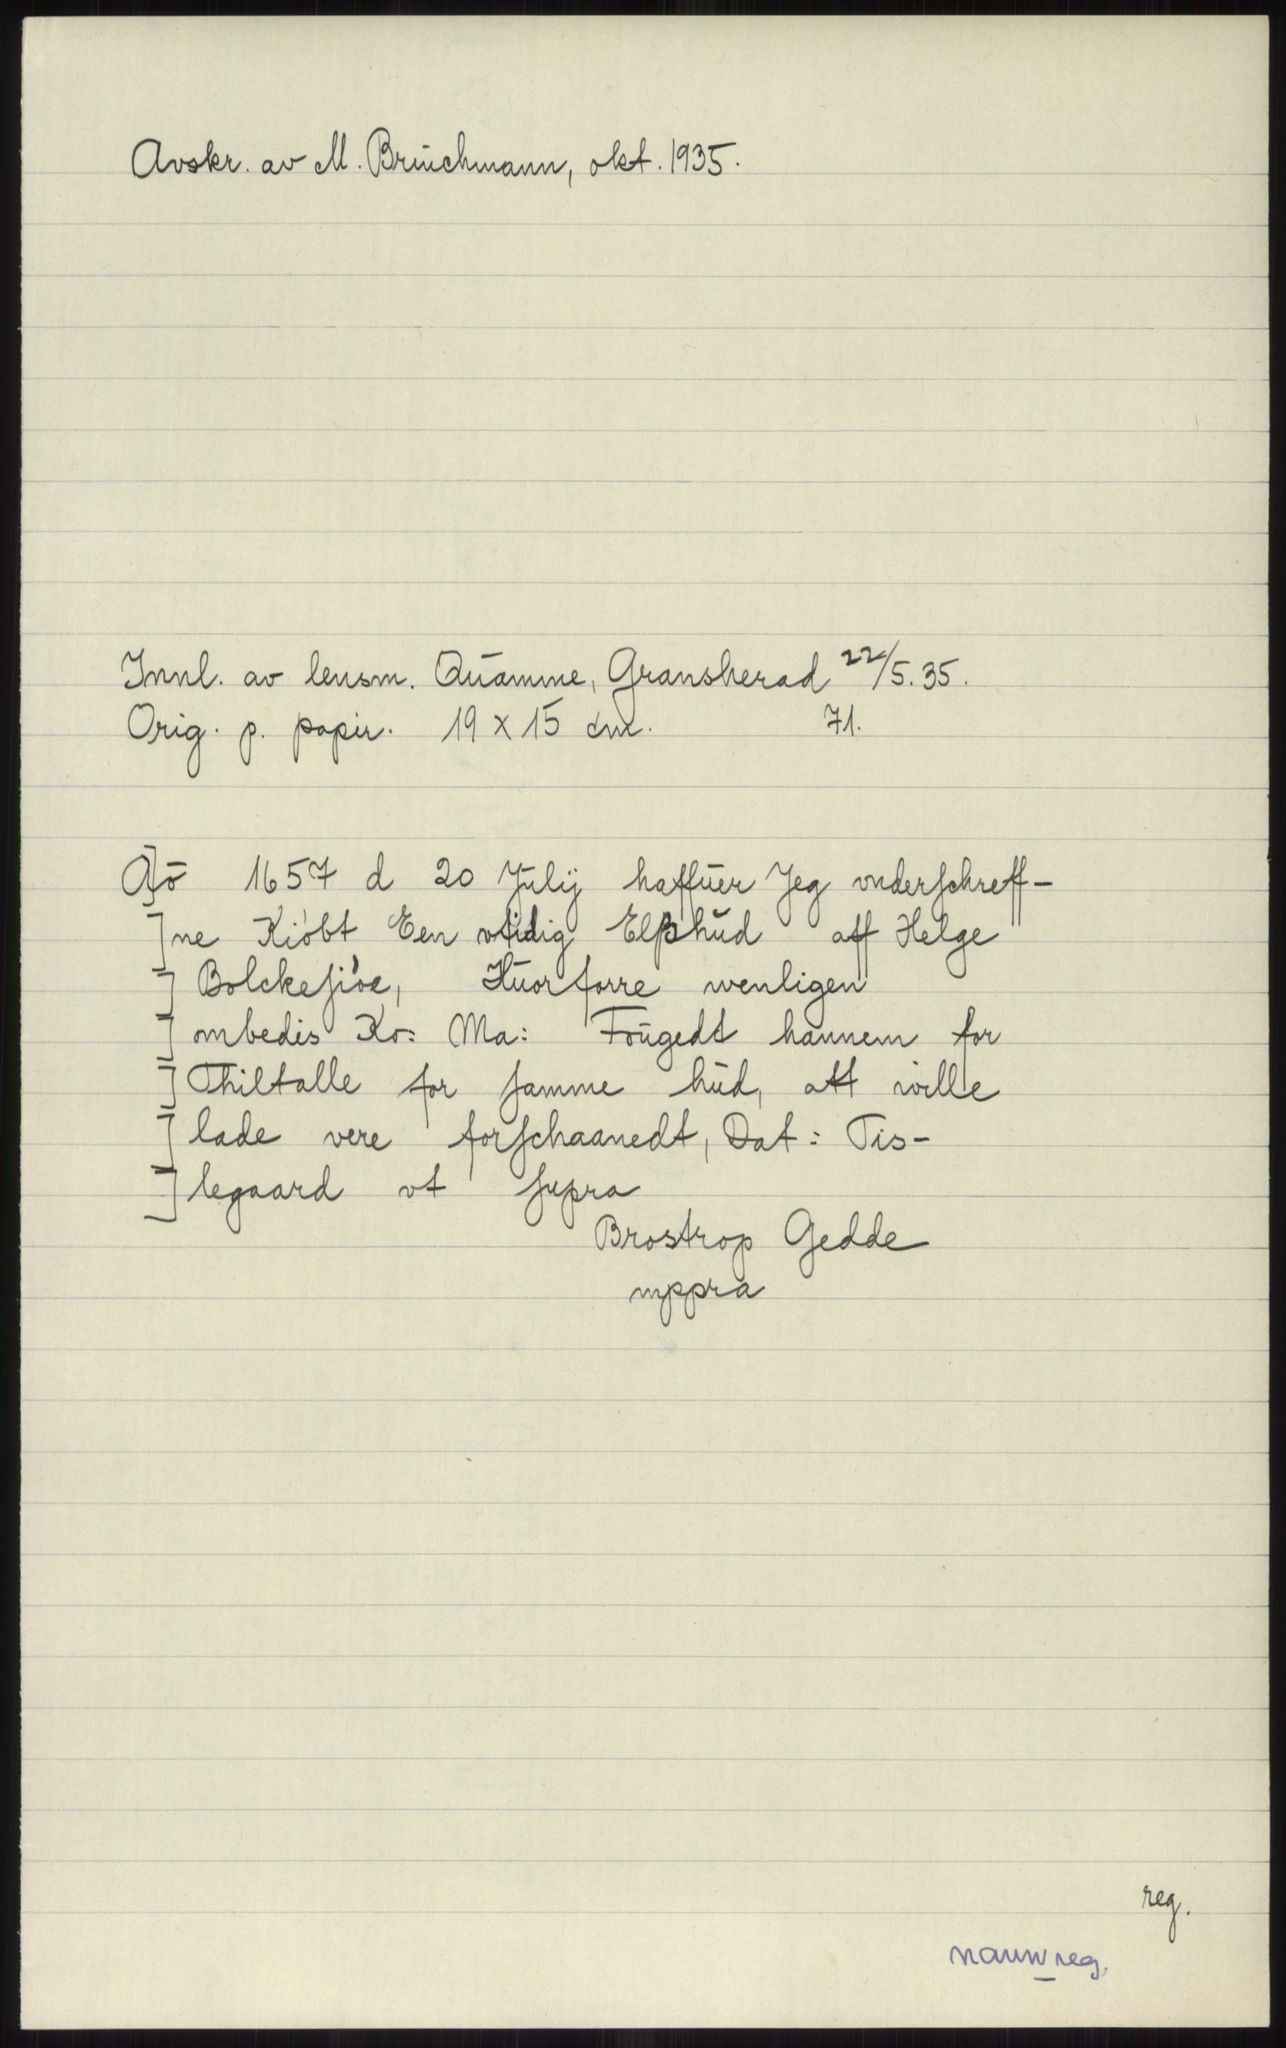 Avskr. av M. Brüchmann, okt. 1935.
Innl. av lensm. Quamme, Gransherad 22/5.35.
Orig. p. papir. 19 x 15 cm. 71.
A]ō 1657 d 20 Julij haffuer Jeg vnderschreff-
]ne Kióbt Een vtidig Elßhud aff Helge
] Bolckesióe, Huorforre wenligen
] ombedis Ko: Ma: Fougedt hannem for
] Thiltalle for samme hud, att wille
] lade vere forschaanedt, Dat: Tis-
] legaard vt supra
Brostrop Gedde
mppra
reg.
navnreg.